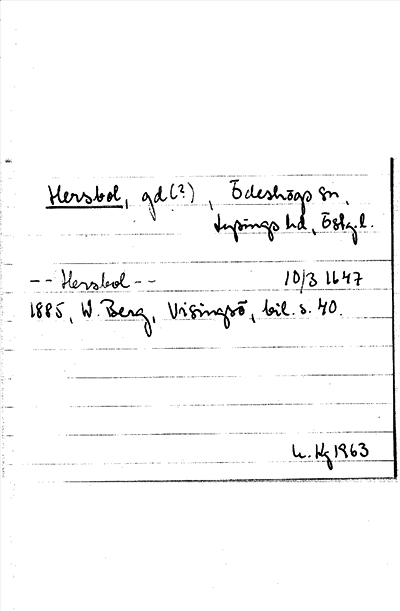 Hersbol, gd(?), Ödeshögs sn,
Lysings hd, Östg.l.
-- Hersbol -- 10/3 1647
1885, W. Berg, Visingsö, bil. s. 40.
1963